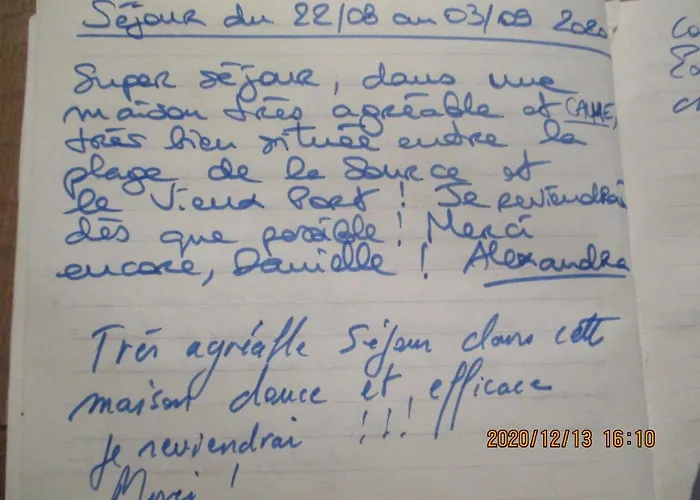 Séjour du 22/08 au 03/09 2020
Super séjour, dans une
maison très agréable et CALME,
très bien située entre la
plage de la Source et
le Vieux Port ! Je reviendrai
dès que possible ! Merci
encore, Danielle ! Alexandra
Très agréable séjour dans cette
maison douce et efficace
Je reviendrai !!!
Merci !
2020/12/13 16:10